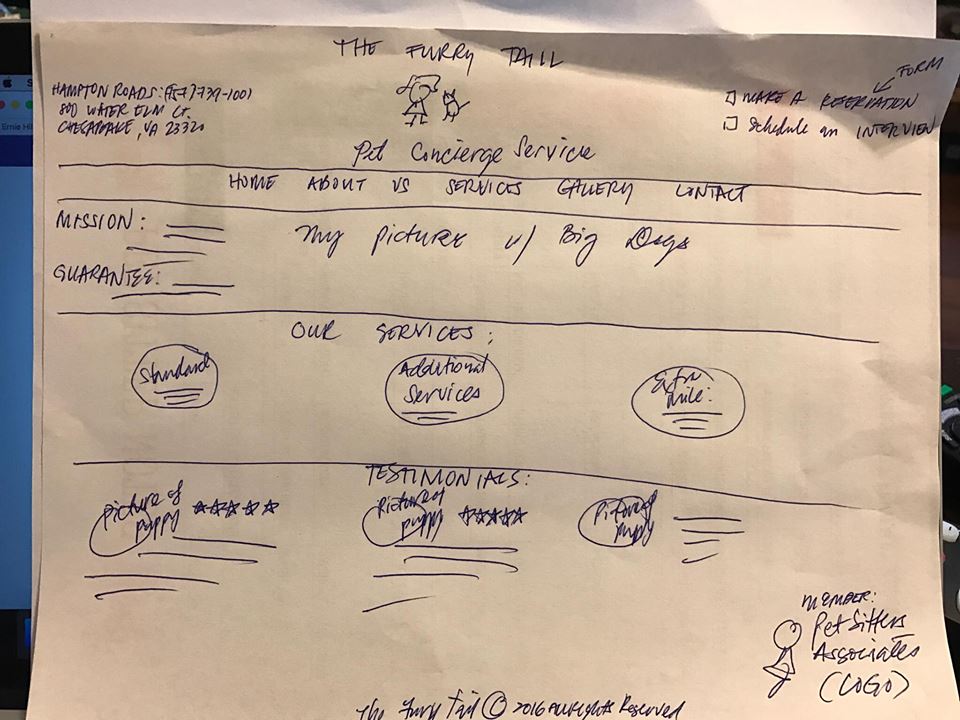 THE FURRY TAIL
HAMPTON ROADS: (757) 739-1001
800 WATER ELM CT.
CHESAPEAKE, VA 23320
FORM
MAKE A RESERVATION
Schedule an INTERVIEW
Pet Concierge Service
HOME ABOUT US SERVICES GALLERY CONTACT
MISSION:
My picture w/ Big Dogs
GUARANTEE:
OUR SERVICES:
Standard
Additional
Services
Extra
mile:
TESTIMONIALS:
picture of
puppy
picture of
puppy
picture of
puppy
MEMBER:
Pet Sitters
Associates
(LOGO)
The Furry Tail © 2016 All Rights Reserved